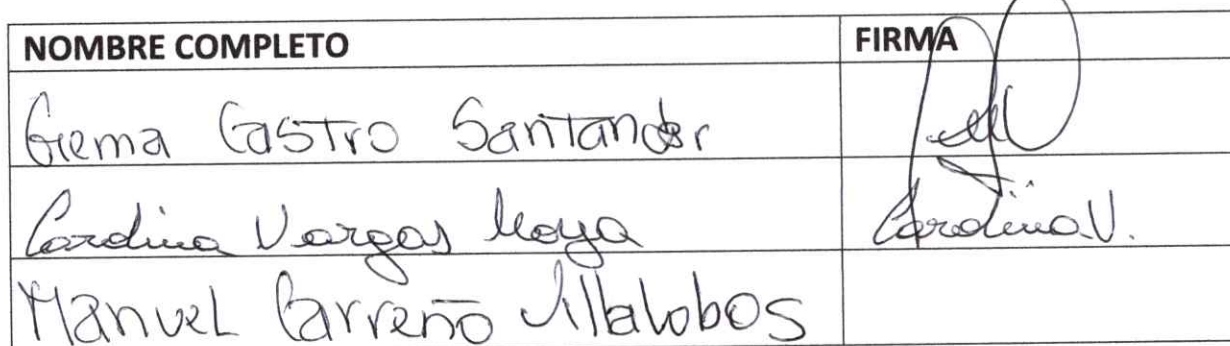 NOMBRE COMPLETO FIRMA
Gema Castro Santander
Carolina Vargas Moya Carolina V.
Manuel Carreño Villalobos